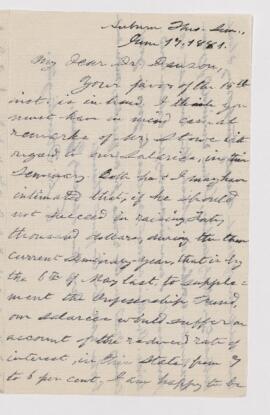 Auburn Theo. Sem.,
June 17, 1881.
My dear Dr. Dawson,
Your favor of the 15th
inst. is in hand. I think you
must have in mind casual
remarks of my
regard to our salaries, in
Seminary. Both he & I may have
intimated that, if we should
not succeed in raising sixty
thousand dollars, during the then
current Seminary-year, that is by
the 6th of May last, to supple-
ment the Professorship Fund,
our salaries would suffer on
account of the reduced rate of
interest, in this State, from 7
to 6 per cent. I am happy to be